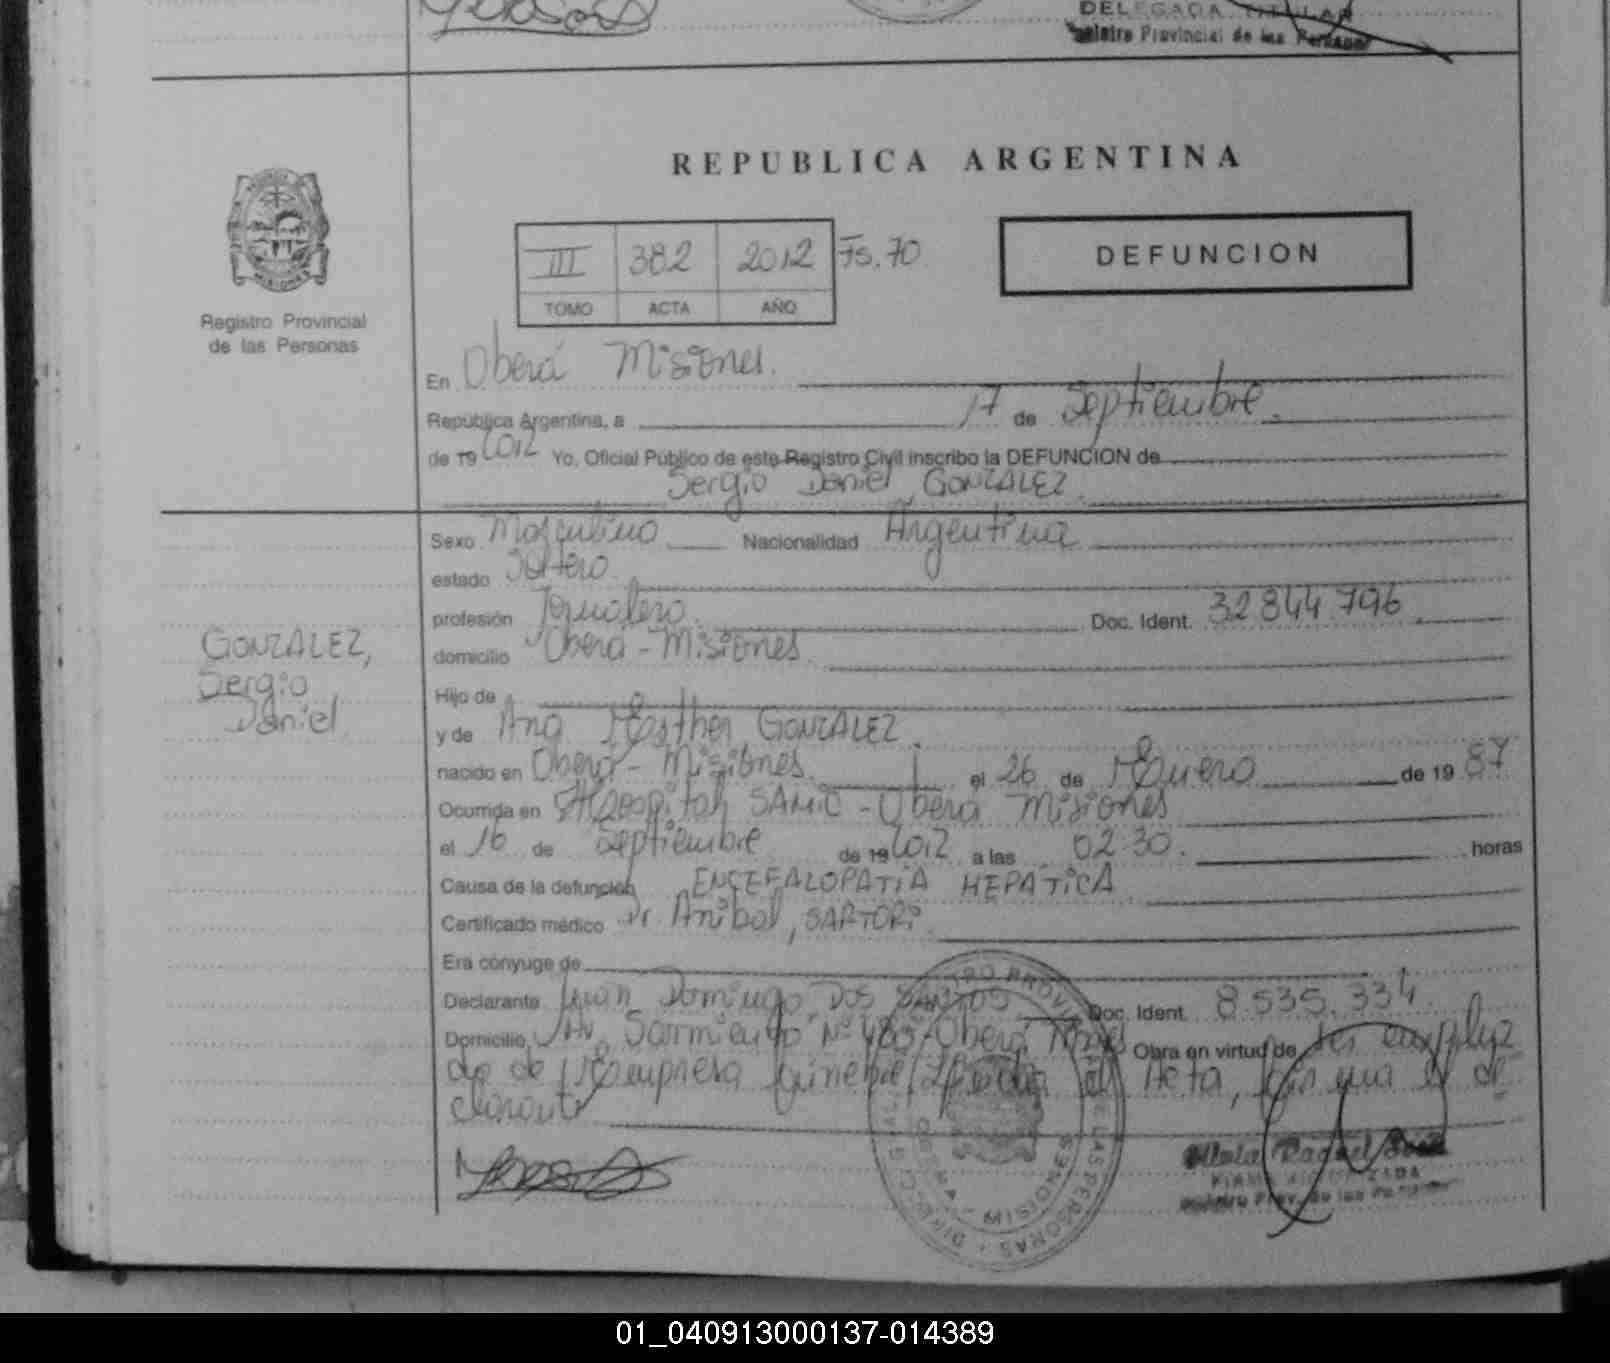 DELEGADA TITULAR
Registro Provincial de las Personas
REPUBLICA ARGENTINA
III 382 2012 Fs. 70
TOMO ACTA AÑO
DEFUNCION
Registro Provincial
de las Personas
En Oberá Misiones.
República Argentina, a 17 de Septiembre.
de 19 2012 Yo, Oficial Público de este Registro Civil inscribo la DEFUNCION de
Sergio Daniel GONZALEZ
Sexo Masculino Nacionalidad Argentina
estado Soltero.
profesión Jornalero. Doc. Ident. 32 844 796
domicilio Oberá - Misiones
GONZALEZ,
Sergio
Daniel
Hijo de
y de Ana Esther GONZALEZ
nacido en Oberá - Misiones. el 26 de Enero de 19 87
Ocurrida en Hospital SAMIC - Oberá Misiones
el 16 de Septiembre de 19 2012 a las 02.30. horas
Causa de la defunción ENCEFALOPATIA HEPATICA
Certificado médico Dr. Anibal, SARTORI
Era cónyuge de
Declarante Juan Domingo DOS SANTOS Doc. Ident. 8.535.334
Domicilio Av. Sarmiento Nº 483 - Oberá Mnes Obra en virtud de ser emplea
do de Empresa fúnebre Leída el Acta, firma el de
clarante
REGISTRO PROVINCIAL DE LAS PERSONAS
OBERA - MISIONES
Raquel
FIRMA AUTORIZADA
Registro Prov. de las Personas
01_040913000137-014389